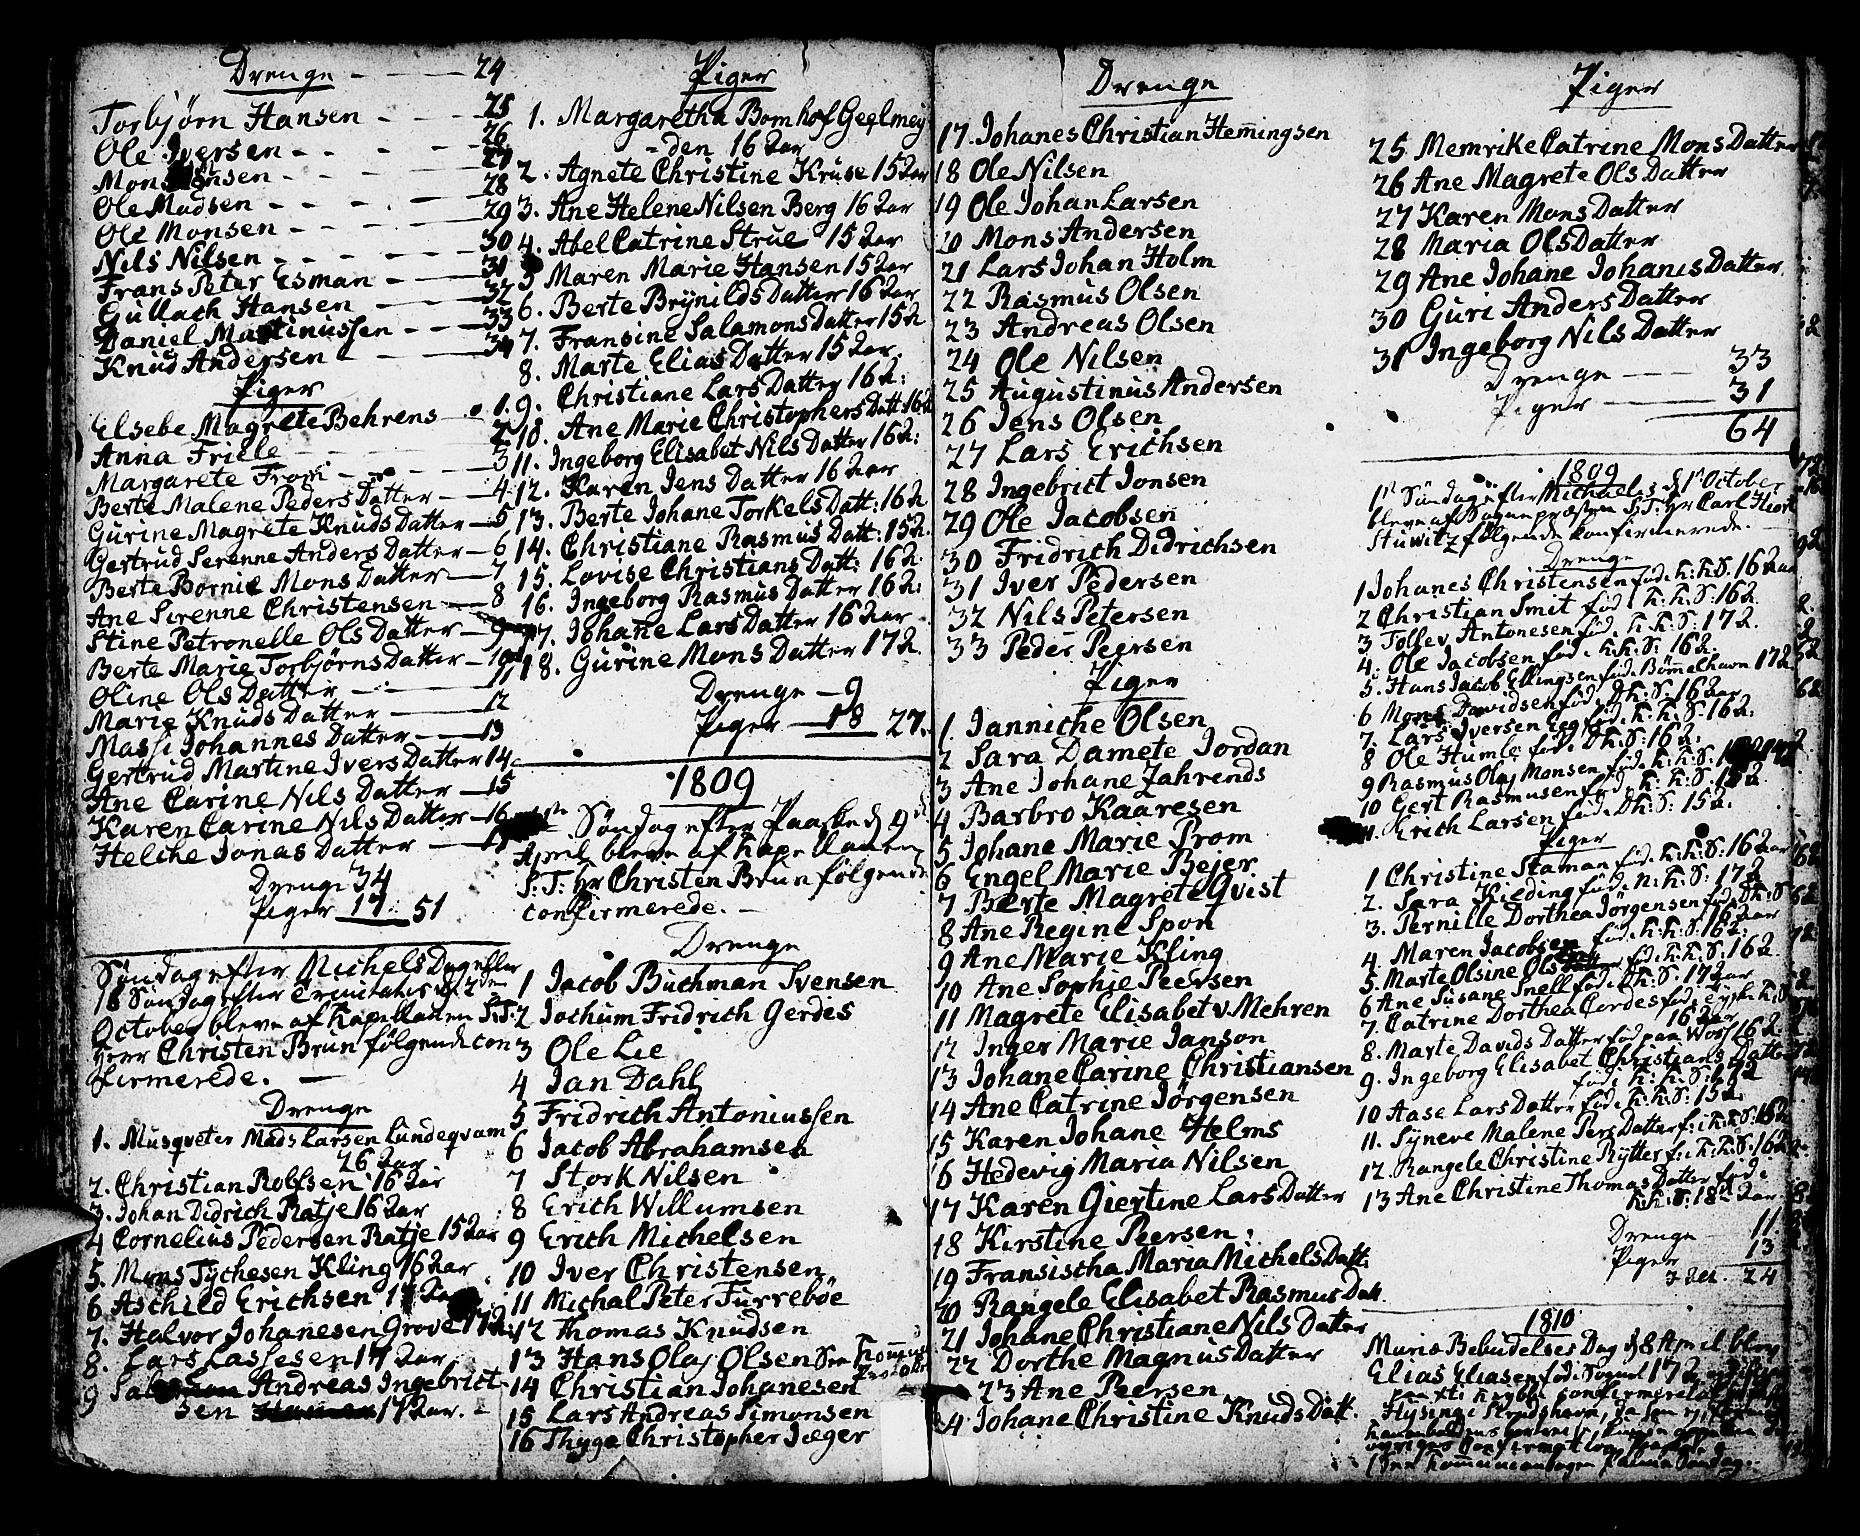 Drenge - - - 24
Torbjørn Hansen - - - 25
Ole Iversen - - - 26
Mons Hansen - - - 27
Ole Madsen - - - 28
Ole Monsen - - - 29
Nils Nilsen - - - 30
Frans Peter Esman - - - 31
Gullach Hansen - - - 32
Daniel Martinussen - - - 33
Knud Andersen - - - 34
Piger
Elsebe Magrete Behrens - 1.
Anna Friele - 2
Margarete From - 3
Berte Malene Peders Datter - 4
Gurine Magrete Knuds Datter - 5
Gertrud Serenne Anders Datter - 6
Berte Bornie Mons Datter - 7
Ane Serenne Christensen - 8
Stine Petronelle Ols Datter - 9
Berte Marie Torbjørns Datter - 10
Oline Ols Datter - 11
Marie Knuds Datter - 12
Massi Johannes Datter - 13
Gertrud Martine Ivers Datter 14
Ane Carine Nils Datter - 15
Karen Carine Nils Datter - 16
Helche Jonas Datter - 17
Drenge 34
Piger 17. 51
Søndag efter Michels Dag eller
16 Søndag efter Trinitatis d. 2den
October bleve af Kapellanen S.T.
Herr Christen Brun følgende con
firmerede. -
Drenge
1. Musqveter Mads Larsen Lundeqvam
26 Aar
2. Christian Rolfsen 16 Aar
3. Johan Didrich Ratje 16 Aar
4 Cornelius Pedersen Ratje 15 Aar
5. Mons Tychesen Kling 16 Aar
6 Aschild Erichsen 17 Aar
7. Halvor Johanesen Grove 17 A:
8. Lars Lassesen 17 Aar
9 Andreas Ingebrict
sen 17 Aar. -
Piger
1. Margaretha Bomhof Geelmey
-den 16 Aar
2. Agnete Christine Kruse 15 Aar
3. Ane Helene Nilsen Berg 16 Aar
4. Abel Catrine Strue 15 Aar
5 Maren Marie Hansen 15 Aar
6. Berte Brynilds Datter 16 Aar
7. Fransine Salamons Datter 15 A
8. Marte Elias Datter 15 Aar
9. Christiane Lars Datter 16 A:
10. Ane Marie Christophers Datt: 16 A
11. Ingeborg Elisabet Nils Datter 16 A:
12. Karen Jens Datter 16 Aar
13. Berte Johane Torkels Datt: 16 A
14. Christiane Rasmus Datt: 15 A
15. Lovise Christians Datt: 16 A:
16. Ingeborg Rasmus Datter 16 A:
17. Johane Lars Datter 16 Aar
18. Gurine Mons Datter 17 A
Drenge - 9
Piger - 18 27.
1809
Søndag efter Paaske d 9d
April bleve af Kapellanen
S.T: Hr Christen Brun følgende
confirmerede. -
Drenge
1 Jacob Buchman Svensen
2 Jochum Fridrich Gerdes
3 Ole Lie
4 Jan Dahl
5 Fridrich Antoniussen
6 Jacob Abrahamsen
7 Stork Nilsen
8 Erich Willumsen
9 Erich Michelsen
10 Iver Christensen
11 Michal Peter Furrebøe
12 Thomas Knudsen
13 Hans Olaj Olsen
14 Christian Johanesen
15 Lars Andreas Simonsen
16 Thyge Christopher Jæger
Drenge
17. Johanes Christian Hemingsen
18 Ole Nilsen
19 Ole Johan Larsen
20 Mons Andersen
21 Lars Johan Holm
22 Rasmus Olsen
23 Andreas Olsen
24 Ole Nilsen
25 Augustinus Andersen
26 Jens Olsen
27 Lars Erichsen
28 Ingebrict Jonsen
29 Ole Jacobsen
30 Fridrich Didrichsen
31 Iver Pedersen
32 Nils Petersen
33 Peder Peersen
Piger
1. Janniche Olsen
2 Sara Damete Jordan
3 Ane Johane Zahrends
4 Barbro Kaaresen
5 Johane Marie Prom
6 Engel Marie Bejer
7 Berte Magrete Qvist
8 Ane Regine Spon
9 Ane Marie Kling
10 Ane Sophie Peersen
11 Magrete Elisabet v. Mehren
12 Inger Marie Janson
13 Johane Carine Christiansen
14 Ane Catrine Jörgensen
15 Karen Johane Helms
16 Hedevig Maria Nilsen
17 Karen Giertine Lars Datter
18 Kirstine Peersen:
19 Fransistha Maria Michels Datt.
20 Rangele Elisabet Rasmus Datt.
21 Johane Christiane Nils Datter
22 Dorthe Magnus Datter
23 Ane Peersen
24 Johane Christine Knuds Datt.
Piger
25 Memrike Catrine Mons Datter
26 Ane Magrete Ols Datter
27 Karen Mons Datter
28 Maria Ols Datter
29 Ane Johane Johanis Datter
30 Guri Anders Datter
31 Ingeborg Nils Datter
Drenge - 33
Piger - 31
64
1809
1st Søndag efter Michaelis d 1st October
bleve af Sognepræsten S.T: Hr Carl Hiort
Stuwitz følgende confirmerede. -
Drenge
1 Johanes Christensen fød. K: K: S. 16 Aar
2 Christian Smit fød. K: K. S: 16 A.
3 Tollev Antonesen fød. K. K. S: 17 A.
4. Ole Jacobsen fød. K. K. S: 16 A.
5. Hans Jacob Ellingsen fød. Bømmelhavn 17 A
6 Mons Davidsen fød. D K: S: 16 Aar
7. Lars Iversen fød. K. K. S: 16 A:
8 Ole Humle fød. D K: S: 16 A:
9 Rasmus Olaj Monsen fød. K: K: S:
10 Gert Rasmusen fød. K: K: S: 15 A.
11. Erich Larsen fød. D K: S: 15 A.
Piger
1 Christine Staman fød. K: K: S: 16 Aar
2. Sara Kilding fød. N: K: S: 17 A
3. Pernille Dorthea Jörgensen fød. D K: S
16 Aar
4. Maren Jacobsen fød. K: K: S: 16 A:
5. Marte Olsine Ols fød. K: K: S: 16 A
6 Ane Susane Snell fød. D K: S: 17 Aar
7. Catrine Dorthea Cordes fød. Tysk: K: S:
16 Aar
8. Marte Davids Datter fød paa Woss 16 A.
9. Ingeborg Elisabet Christians Datter
fød. K. K. S: 17 A
10 Aase Lars Datter fød. K. K. S: 15 A.
11. Syneve Malene Pers Datter f: K: K: S: 16 A
12. Rangele Christine Rytter f: K: K: S: 16 A
13 Ane Christine Thomas Datter fød i
K: K: S: 18 Aar
Drenge - 11
Piger 13
24
1810
Mariæ Bebudelses Dag d 8 April blev
Elias Eliasen fød i Sognet 17 A
confirmeret